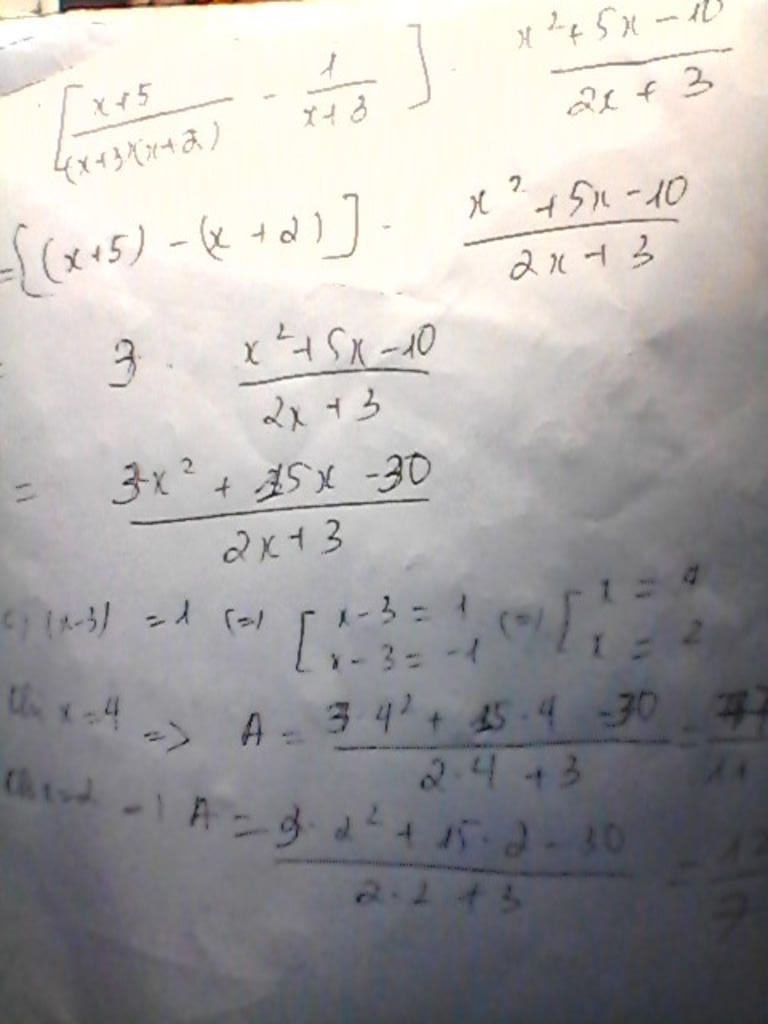 [(x+5)/((x+3)(x+2)) - 1/(x+3)] . (x²+5x-10)/(2x+3)
= [(x+5) - (x+2)] . (x²+5x-10)/(2x+3)
3 . (x²+5x-10)/(2x+3)
= (3x² + 15x - 30)/(2x+3)
c) (x-3) = 1 (=) [x-3 = 1 (=) [x = 4
x-3 = -1 x = 2
x=4 => A = (3.4² + 15.4 - 30)/(2.4 + 3) =
A = (3.2² + 15.2 - 30)/(2.2 + 3) = 12/7